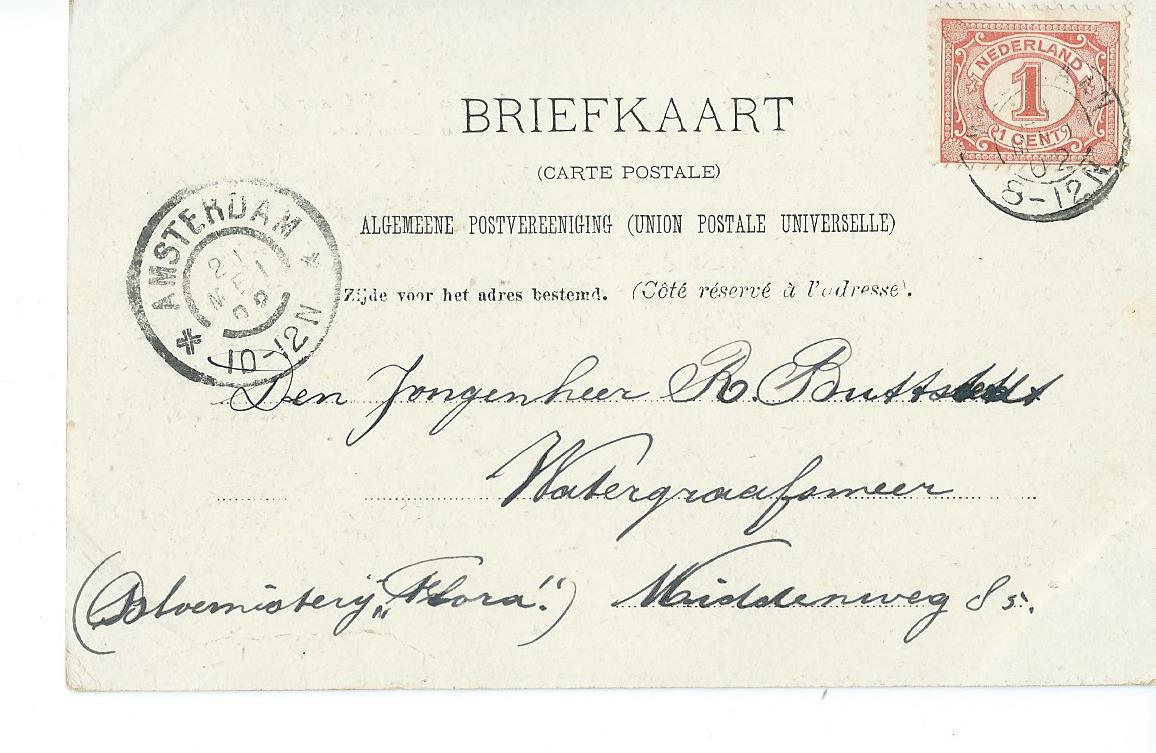 NEDERLAND
1
1 CENT
8-12N
BRIEFKAART
(CARTE POSTALE)
ALGEMEENE POSTVEREENIGING (UNION POSTALE UNIVERSELLE)
Zijde voor het adres bestemd. (Côté réservé à l'adresse).
AMSTERDAM
21
MEI
02
10-12N
Den Jongenheer R. Buttstedt
Watergraafsmeer
(Bloemisterij „Flora".) Middenweg 85.